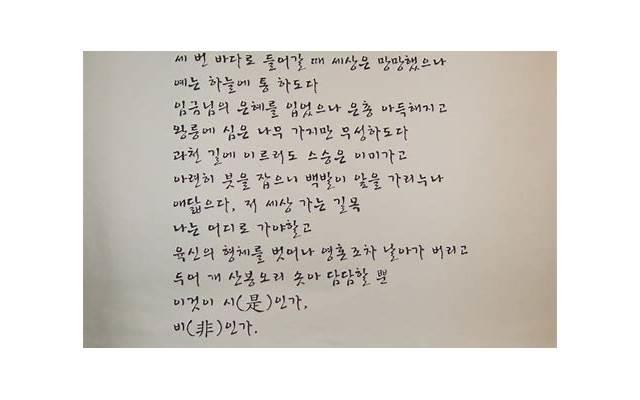 세 번 바다로 들어갈 때 세상은 망망했으나
예는 하늘에 통 하도다
임금님의 은혜를 입었으나 은총 아득해지고
왕릉에 심은 나무 가지만 무성하도다
과천 길에 이르러도 스승은 이미가고
아련히 붓을 잡으니 백발이 앞을 가리누나
애닯으다, 저 세상 가는 길목
나는 어디로 가야할고
육신의 형체를 벗어나 영혼조차 날아가 버리고
두어 개 산봉오리 솟아 담담할 뿐
이것이 시(是)인가,
비(非)인가.